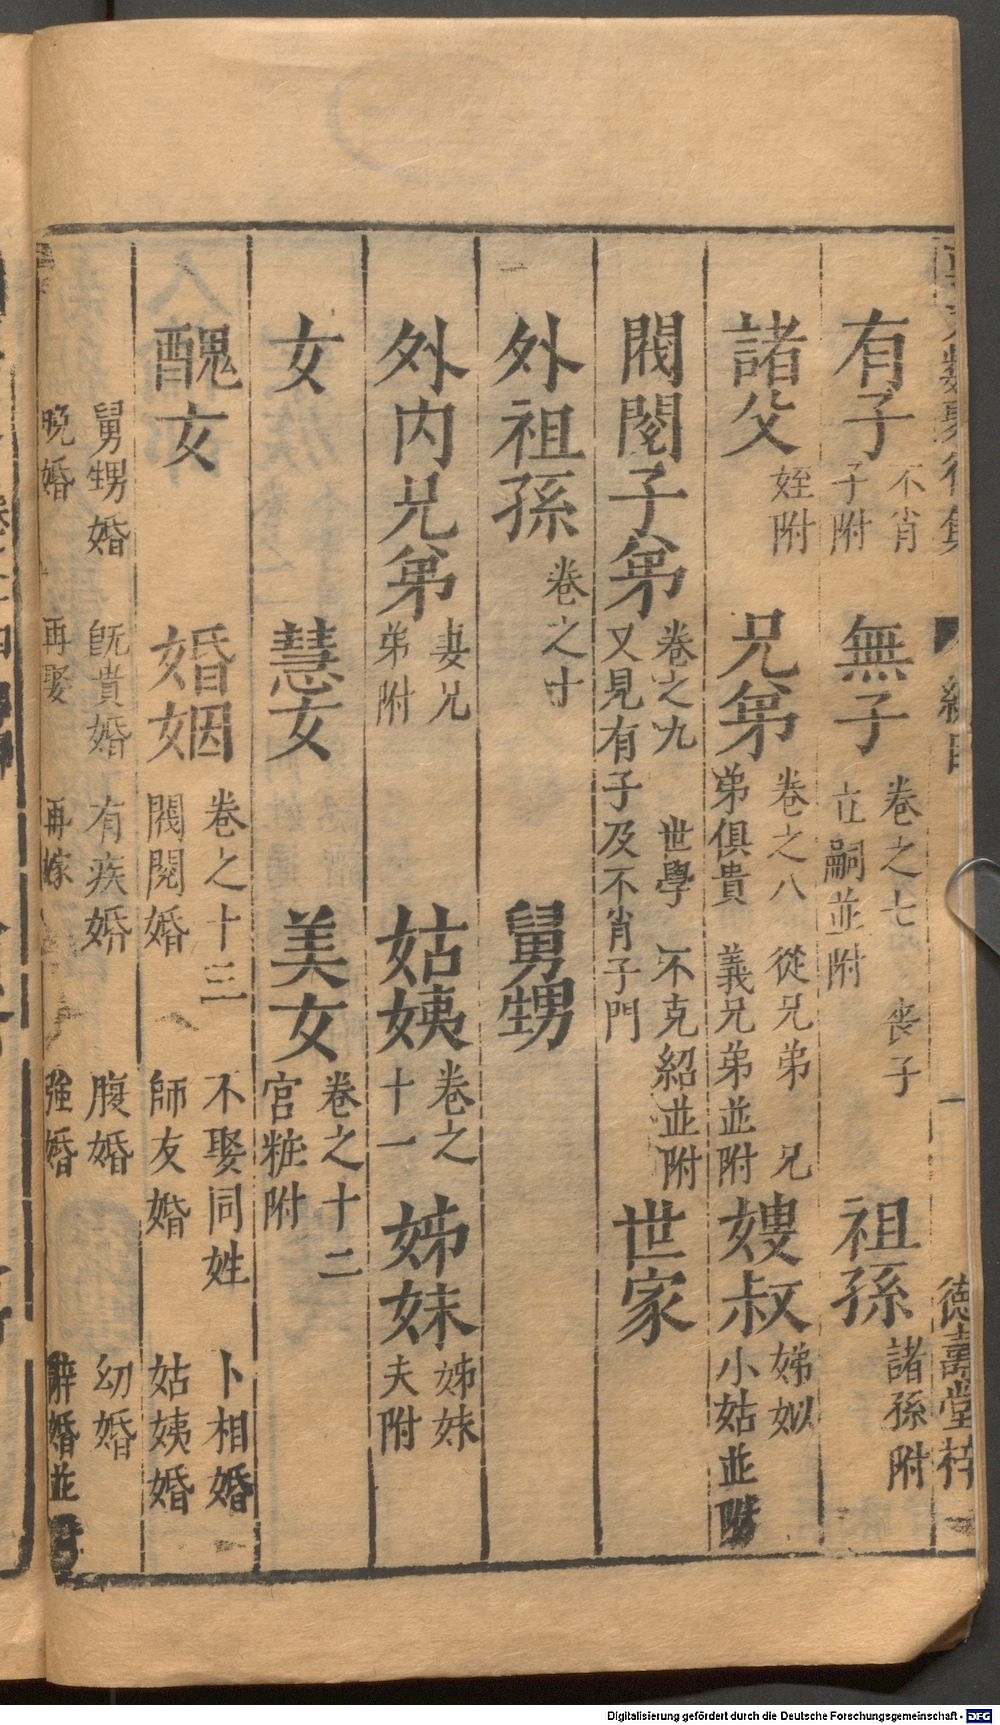 有子 不肖子附 無子 卷之七 喪子 立嗣並附 祖孫 諸孫附
諸父 姪附 兄弟 卷之八 從兄弟 兄弟俱貴 義兄弟並附 嫂叔 娣姒 小姑並附
閥閱子弟 卷之九 世學 不克紹並附 又見有子及不肖子門 世家
外祖孫 卷之十 舅甥
外内兄弟 妻兄弟附 姑姨 卷之十一 姊妹 姊妹夫附
女 慧女 美女 卷之十二 官粧附
醜女 婚姻 卷之十三 不娶同姓 卜相婚 閥閱婚 師友婚 姑姨婚
舅甥婚 旣貴婚 有疾婚 腹婚 幼婚
晚婚 再娶 再嫁 強婚 辭婚並附
德壽堂梓
Digitalisierung gefördert durch die Deutsche Forschungsgemeinschaft - DFG